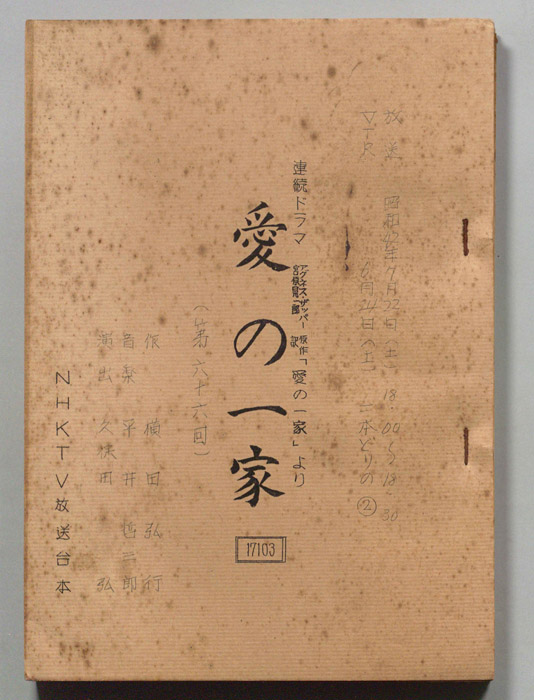 放送 昭和42年7月22日(土) 18:00〜18:30
VTR 6月24日(土) 二本どりの②
連続ドラマ アグネス・ザッパー 原作 訳「愛の一家」より
愛の一家
(第六十六回)
17103
作 横田弘行
音楽 平井哲三郎
演出 久保田 弘
NHKTV放送台本